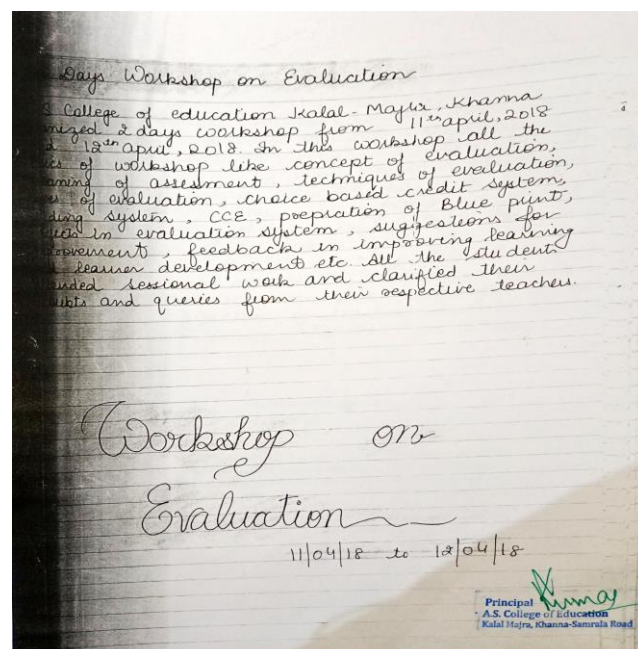 Days Workshop on Evaluation
S College of education Kalal-Majra, Khanna
nized 2 days workshop from 11th april, 2018
12th april, 2018. In this workshop all the
of workshop like concept of evaluation,
aning of assesment, techniques of evaluation,
of evaluation, choice based credit system,
ding system, CCE, prepration of Blue print,
in evaluation system, suggestions for
provement, feedback in improving learning
learner development etc. All the student
nded sessional work and clarified their
ubts and queries from their respective teachers.
Workshop on
Evaluation
11/04/18 to 12/04/18
Principal
A.S. College of Education
Kalal Majra, Khanna-Samrala Road